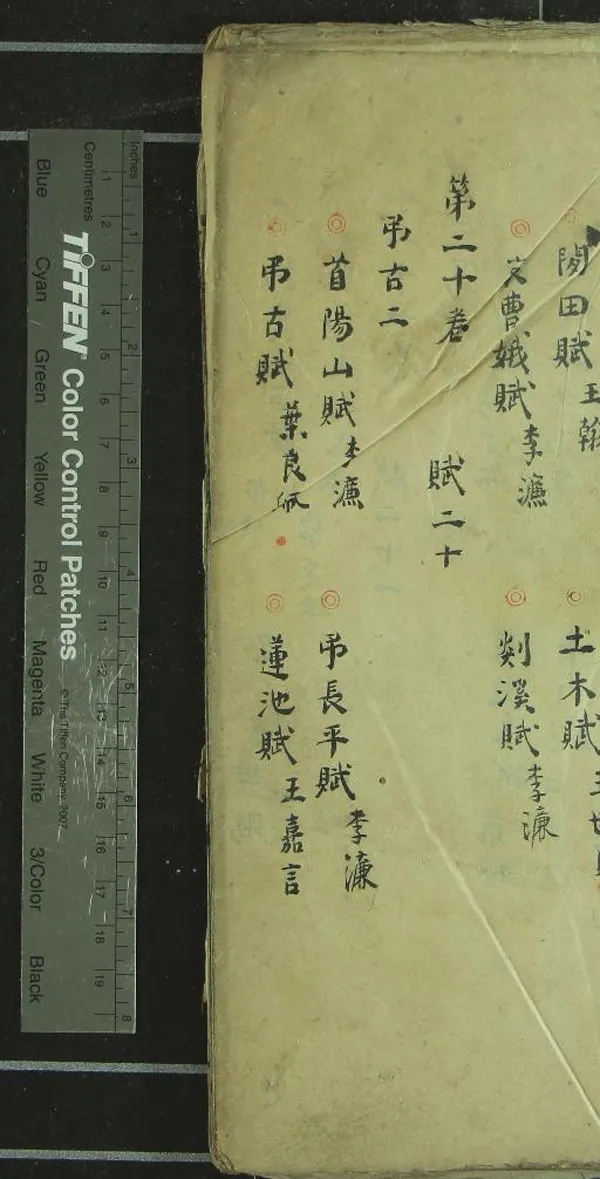 田賦 王翰 土木賦 王世
曹娥賦 李濂 剡溪賦 李濂
第二十卷 賦二十
弔古二
首陽山賦 李濂 弔長平賦 李濂
弔古賦 葉良佩 蓮池賦 王嘉言
Inches 1 2 3 4 5 6 7 8
Centimetres 1 2 3 4 5 6 7 8 9 10 11 12 13 14 15 16 17 18 19
TIFFEN® Color Control Patches © The Tiffen Company, 2007
Blue Cyan Green Yellow Red Magenta White 3/Color Black